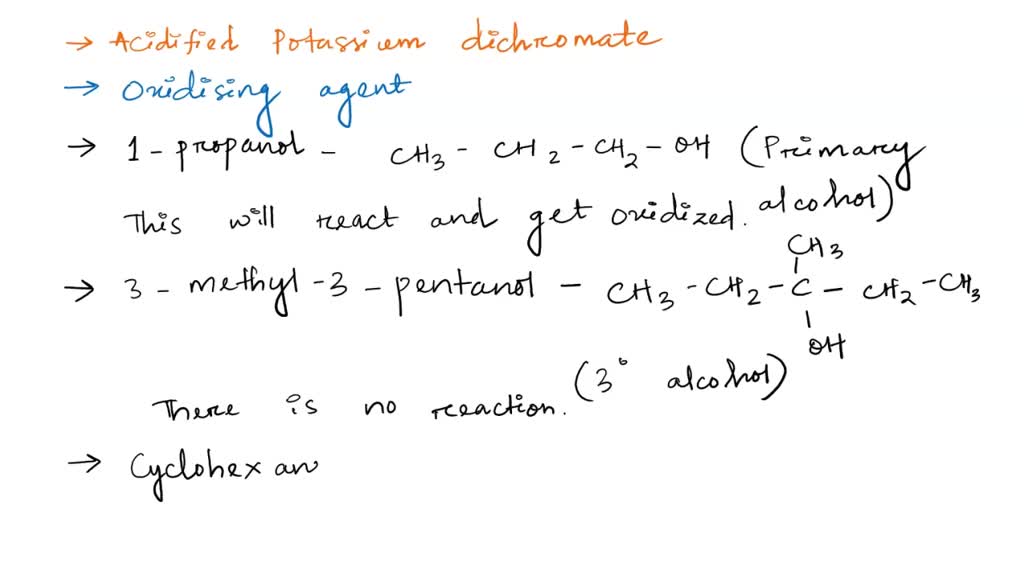 → Acidified Potassium dichromate
→ Oxidising agent
→ 1-propanol - CH3 - CH2 - CH2 - OH (Primary alcohol)
This will react and get oxidized.
CH3
→ 3-methyl-3-pentanol - CH3 - CH2 - C - CH2 - CH3
OH
(3° alcohol)
There is no reaction.
→ Cyclohexan